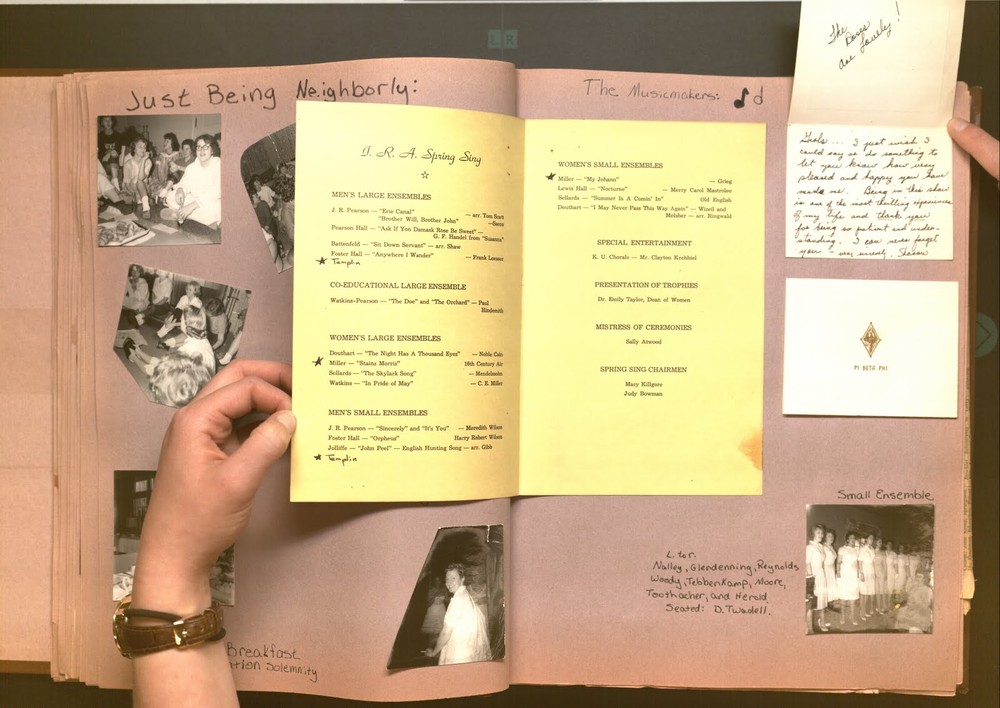 L R
Just Being Neighborly:
The Musicmakers:
The
Roses
are lovely!
Girls... I just wish I
could say or do something to
let you know how very
pleased and happy you have
made me. Being in this show
is one of the most thrilling experiences
of my life and thank you
for being so patient and under-
standing. I can never forget
you - very sincerely, Sharon
PI BETA PHI
I. R. A. Spring Sing
MEN'S LARGE ENSEMBLES
J. R. Pearson — "Erie Canal" — arr. Tom Scott
"Brother Will, Brother John"
Pearson Hall — "Ask If Yon Damask Rose Be Sweet" —
G. F. Handel from "Susanna"
Battenfeld — "Sit Down Servant" — arr. Shaw
Foster Hall — "Anywhere I Wander" — Frank Loesser
Templin
CO-EDUCATIONAL LARGE ENSEMBLE
Watkins-Pearson — "The Doe" and "The Orchard" — Paul
Hindemith
WOMEN'S LARGE ENSEMBLES
Douthart — "The Night Has A Thousand Eyes" — Noble Cain
Miller — "Stains Morris" 16th Century Air
Sellards — "The Skylark Song" — Mendelssohn
Watkins — "In Pride of May" — C. E. Miller
MEN'S SMALL ENSEMBLES
J. R. Pearson — "Sincerely" and "It's You" — Meredith Wilson
Foster Hall — "Orpheus" Harry Robert Wilson
Jolliffe — "John Peel" — English Hunting Song — arr. Gibb
Templin
WOMEN'S SMALL ENSEMBLES
Miller — "My Johann" — Grieg
Lewis Hall — "Nocturne" — Mercy Carol Mastroleo
Sellards — "Summer Is A Comin' In" Old English
Douthart — "I May Never Pass This Way Again" — Wizell and
Melsher — arr. Ringwald
SPECIAL ENTERTAINMENT
K. U. Chorale — Mr. Clayton Krehbiel
PRESENTATION OF TROPHIES
Dr. Emily Taylor, Dean of Women
MISTRESS OF CEREMONIES
Sally Atwood
SPRING SING CHAIRMEN
Mary Killgore
Judy Bowman
Small Ensemble
L. to r.
Nalley, Glendenning, Reynolds
Woody, Tebbenkamp, Moore,
Toothacher, and Herold.
Seated: D. Twadell.
Breakfast
Solemnity